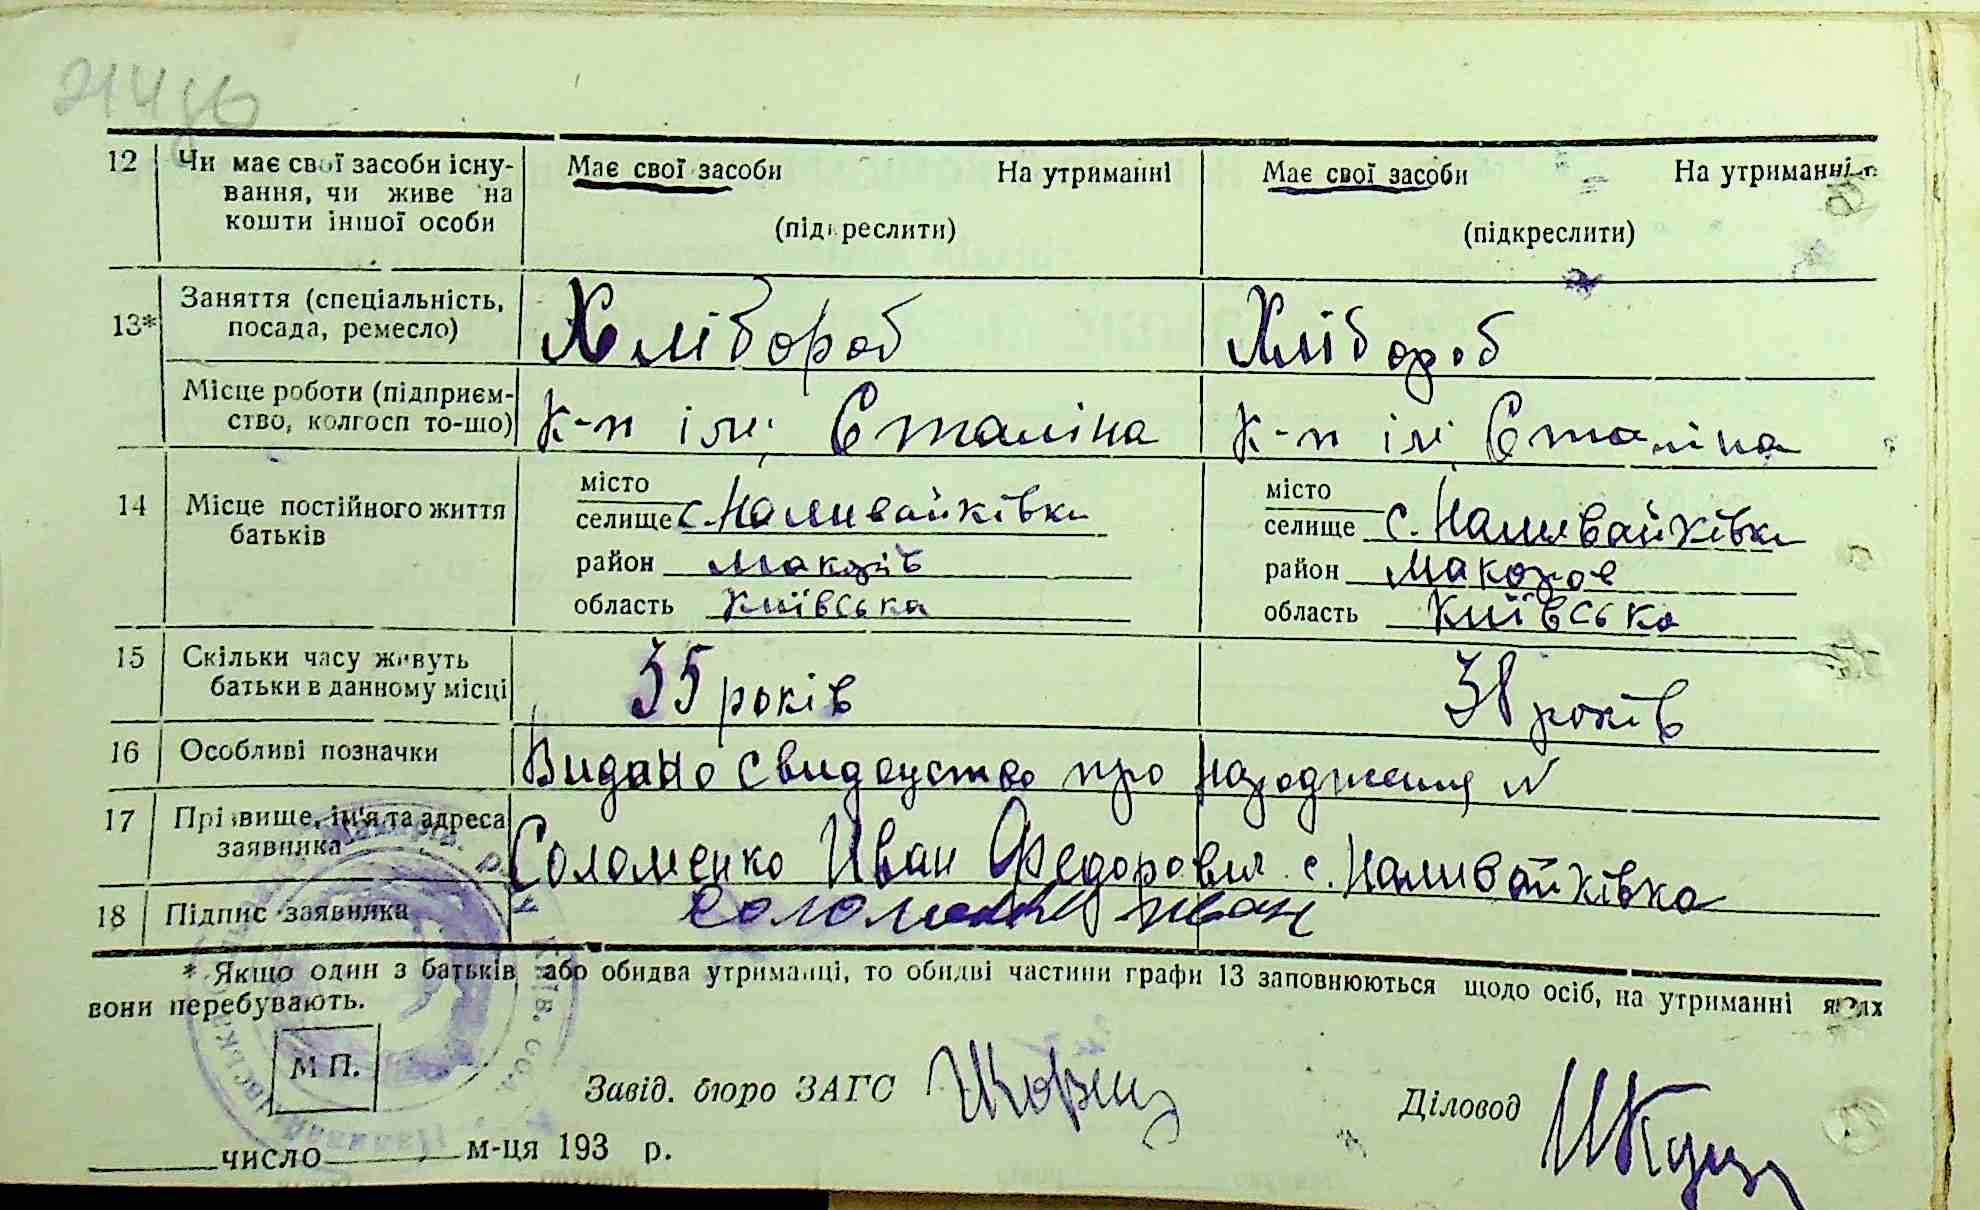 12 Чи має свої засоби існу- Має свої засоби На утриманні Має свої засоби На утриманні
вання, чи живе на
кошти іншої особи (підкреслити) (підкреслити)
13* Заняття (спеціальність, Хлібороб Хлібороб
посада, ремесло)
Місце роботи (підприєм- К-п ім. Сталіна К-п ім Сталіна
ство, колгосп то-що)
місто місто
14 Місце постійного життя селище с. Наливайківка селище с. Наливайківка
батьків район Макарів район Макаров
область Київська область Київська
15 Скільки часу живуть 35 років 38 років
батьки в данному місці
16 Особливі позначки Видано свидоцтво про народження №
17 Прізвище, ім'я та адреса
заявника Соломенко Иван Федорович с. Наливайківка
18 Підпис заявника Соломенко Иван
* Якщо один з батьків або обидва утриманці, то обидві частини графи 13 заповнюються щодо осіб, на утриманні яких
вони перебувають.
М П.
Завід. бюро ЗАГС Діловод
число м-ця 193 р.